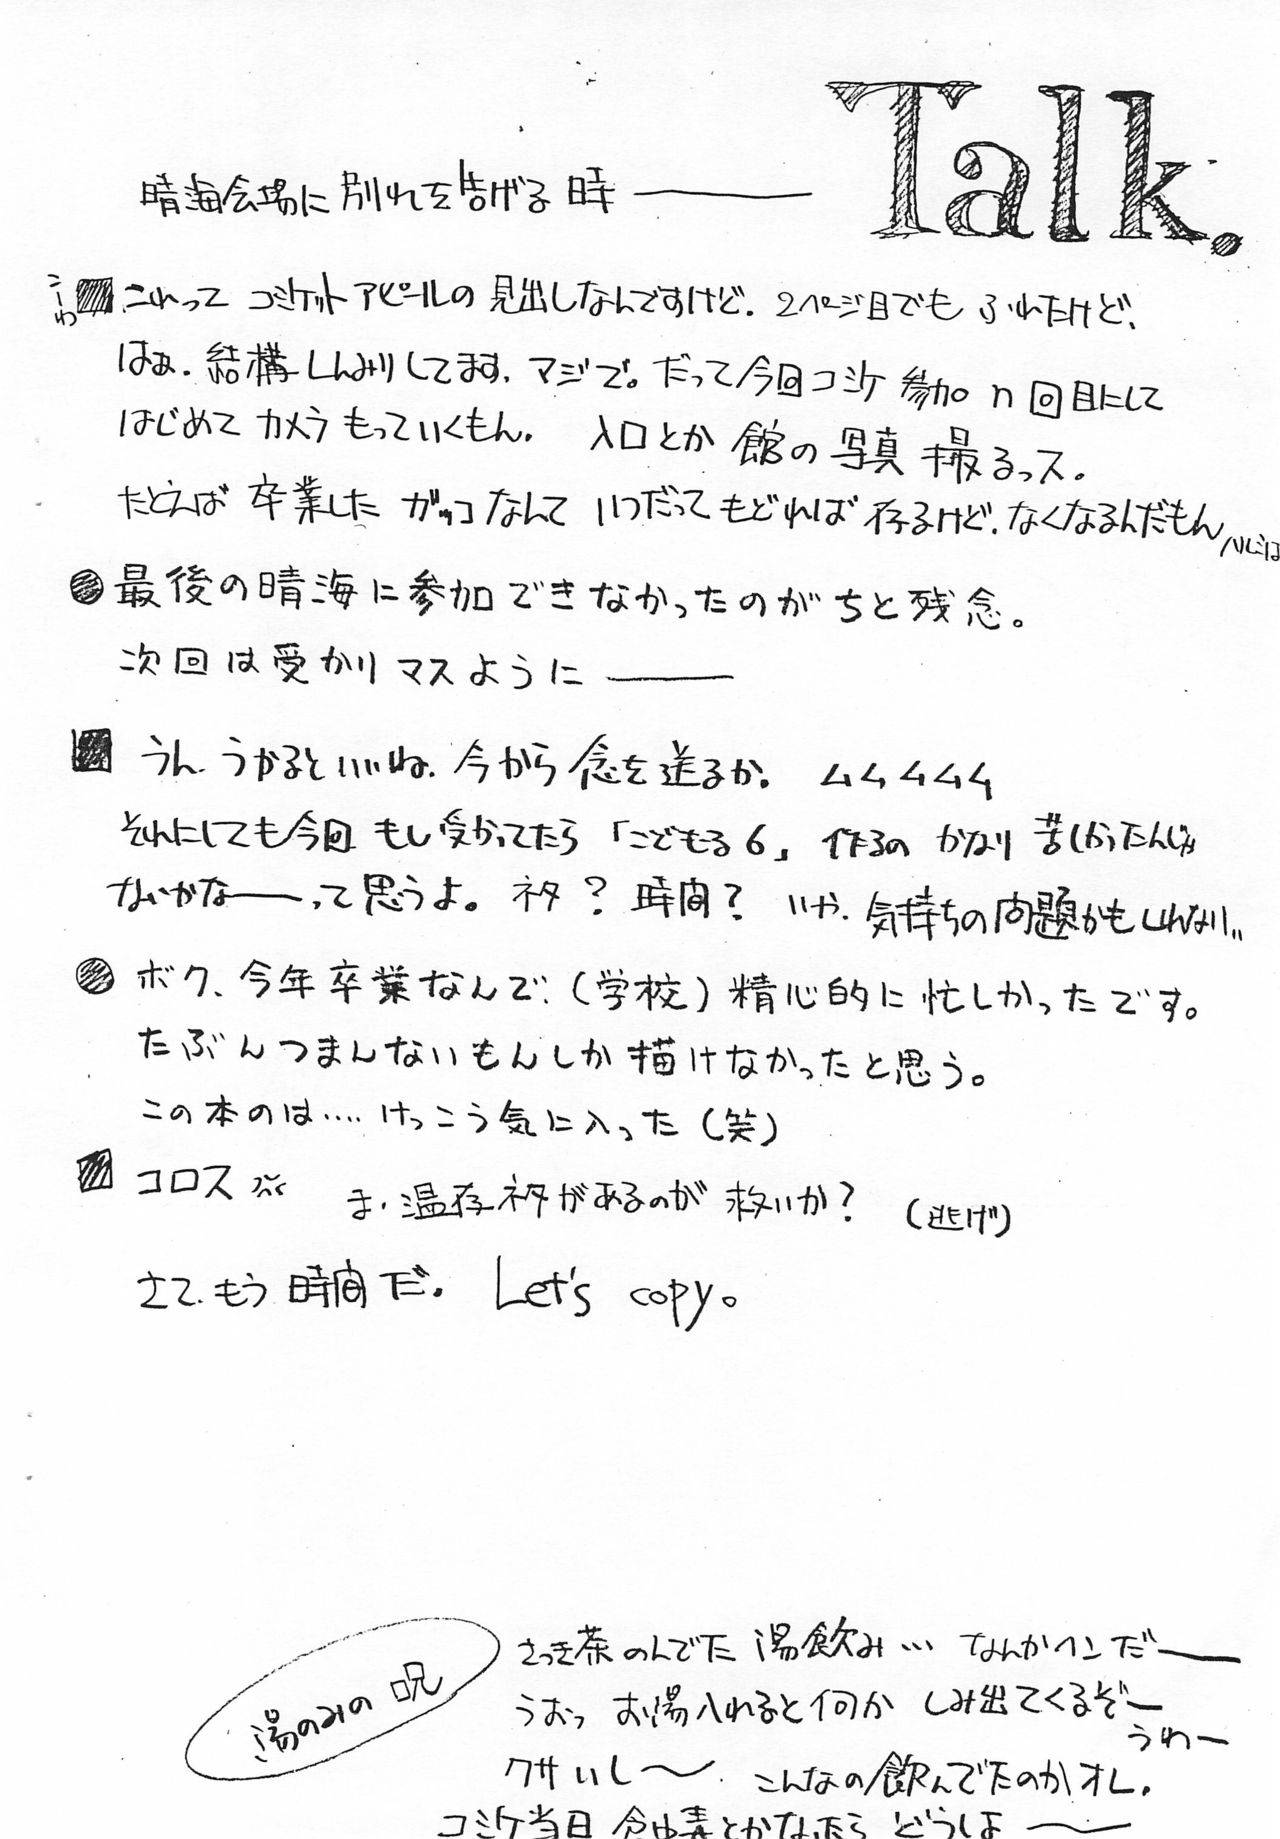 Talk.
晴海会場に別れを告げる時――
こーわ
これって コミケットアピールの 見出しなんですけど. 2ページ目でも ふれたけど、
はぁ. 結構しんみりしてます. マジで。だって今回コミケ 参加 n回目にして
はじめて カメラ もっていくもん. 入口とか 館の 写真 撮るっス。
たとえば 卒業した ガッコなんて いつだって もどれば 存るけど、なくなるんだもん ハルミは
最後の晴海に参加できなかったのがちと残念。
次回は受かりマスように――
うん. うかるといいね. 今から 念を送るか. ムムムムム
それにしても今回 もし受かってたら「こどもる6」作るの かなり 苦しかったんじゃ
ないかなーって思うよ。ネタ？時間？ いや. 気持ちの問題かもしれない..
ボク、今年卒業なんで、(学校) 精心的に 忙しかったです。
たぶんつまんないもんしか描けなかったと思う。
この本のは‥‥けっこう気に入った(笑)
コロス
ま. 温存ネタがあるのが 救いか？ (逃げ)
さて. もう 時間だ. Let's copy。
湯のみの呪
さっき茶のんでた 湯飲み… なんかヘンだー
うおっ お湯入れると何か しみ出てくるぞー
うわー
クサいし〜. こんなの飲んでたのかオレ.
コミケ当日 食中毒とかなったら どうしよ〜